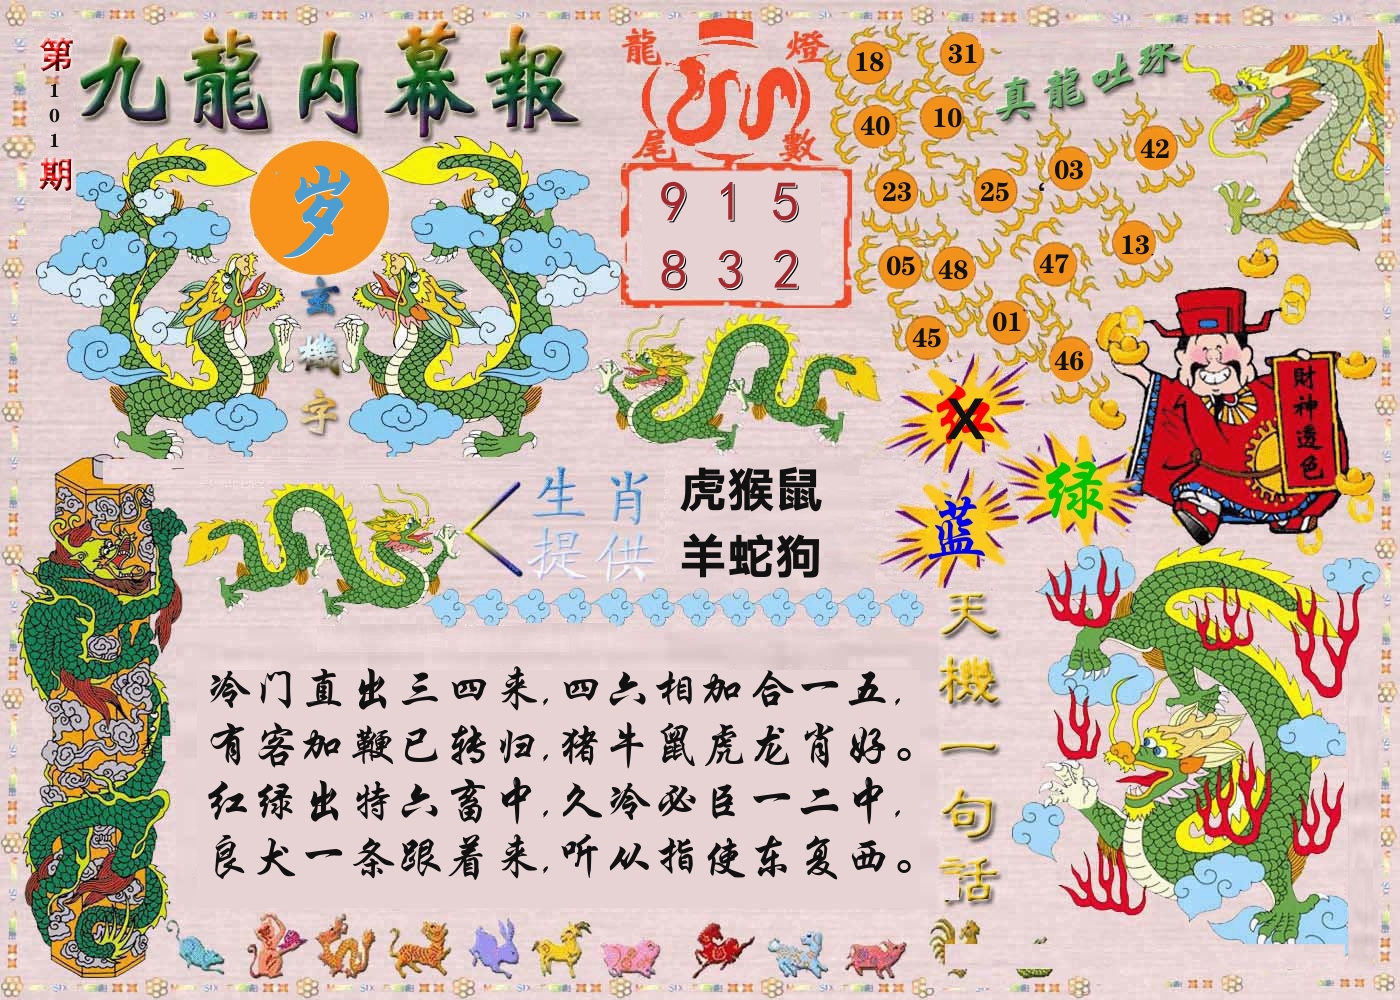 第101期
九龍内幕報
岁
玄機字
龍燈
尾數
9 1 5
8 3 2
真龍吐珠
18 31
40 10
42
03
23 25
13
05 48 47
01
45
46
红 X
绿
蓝
財神透色
生肖
提供
虎猴鼠
羊蛇狗
天機一句話
冷门直出三四来,四六相加合一五,
有客加鞭已转归,猪牛鼠虎龙肖好。
红绿出特六畜中,久冷必臣一二中,
良犬一条跟着来,听从指使东复西。